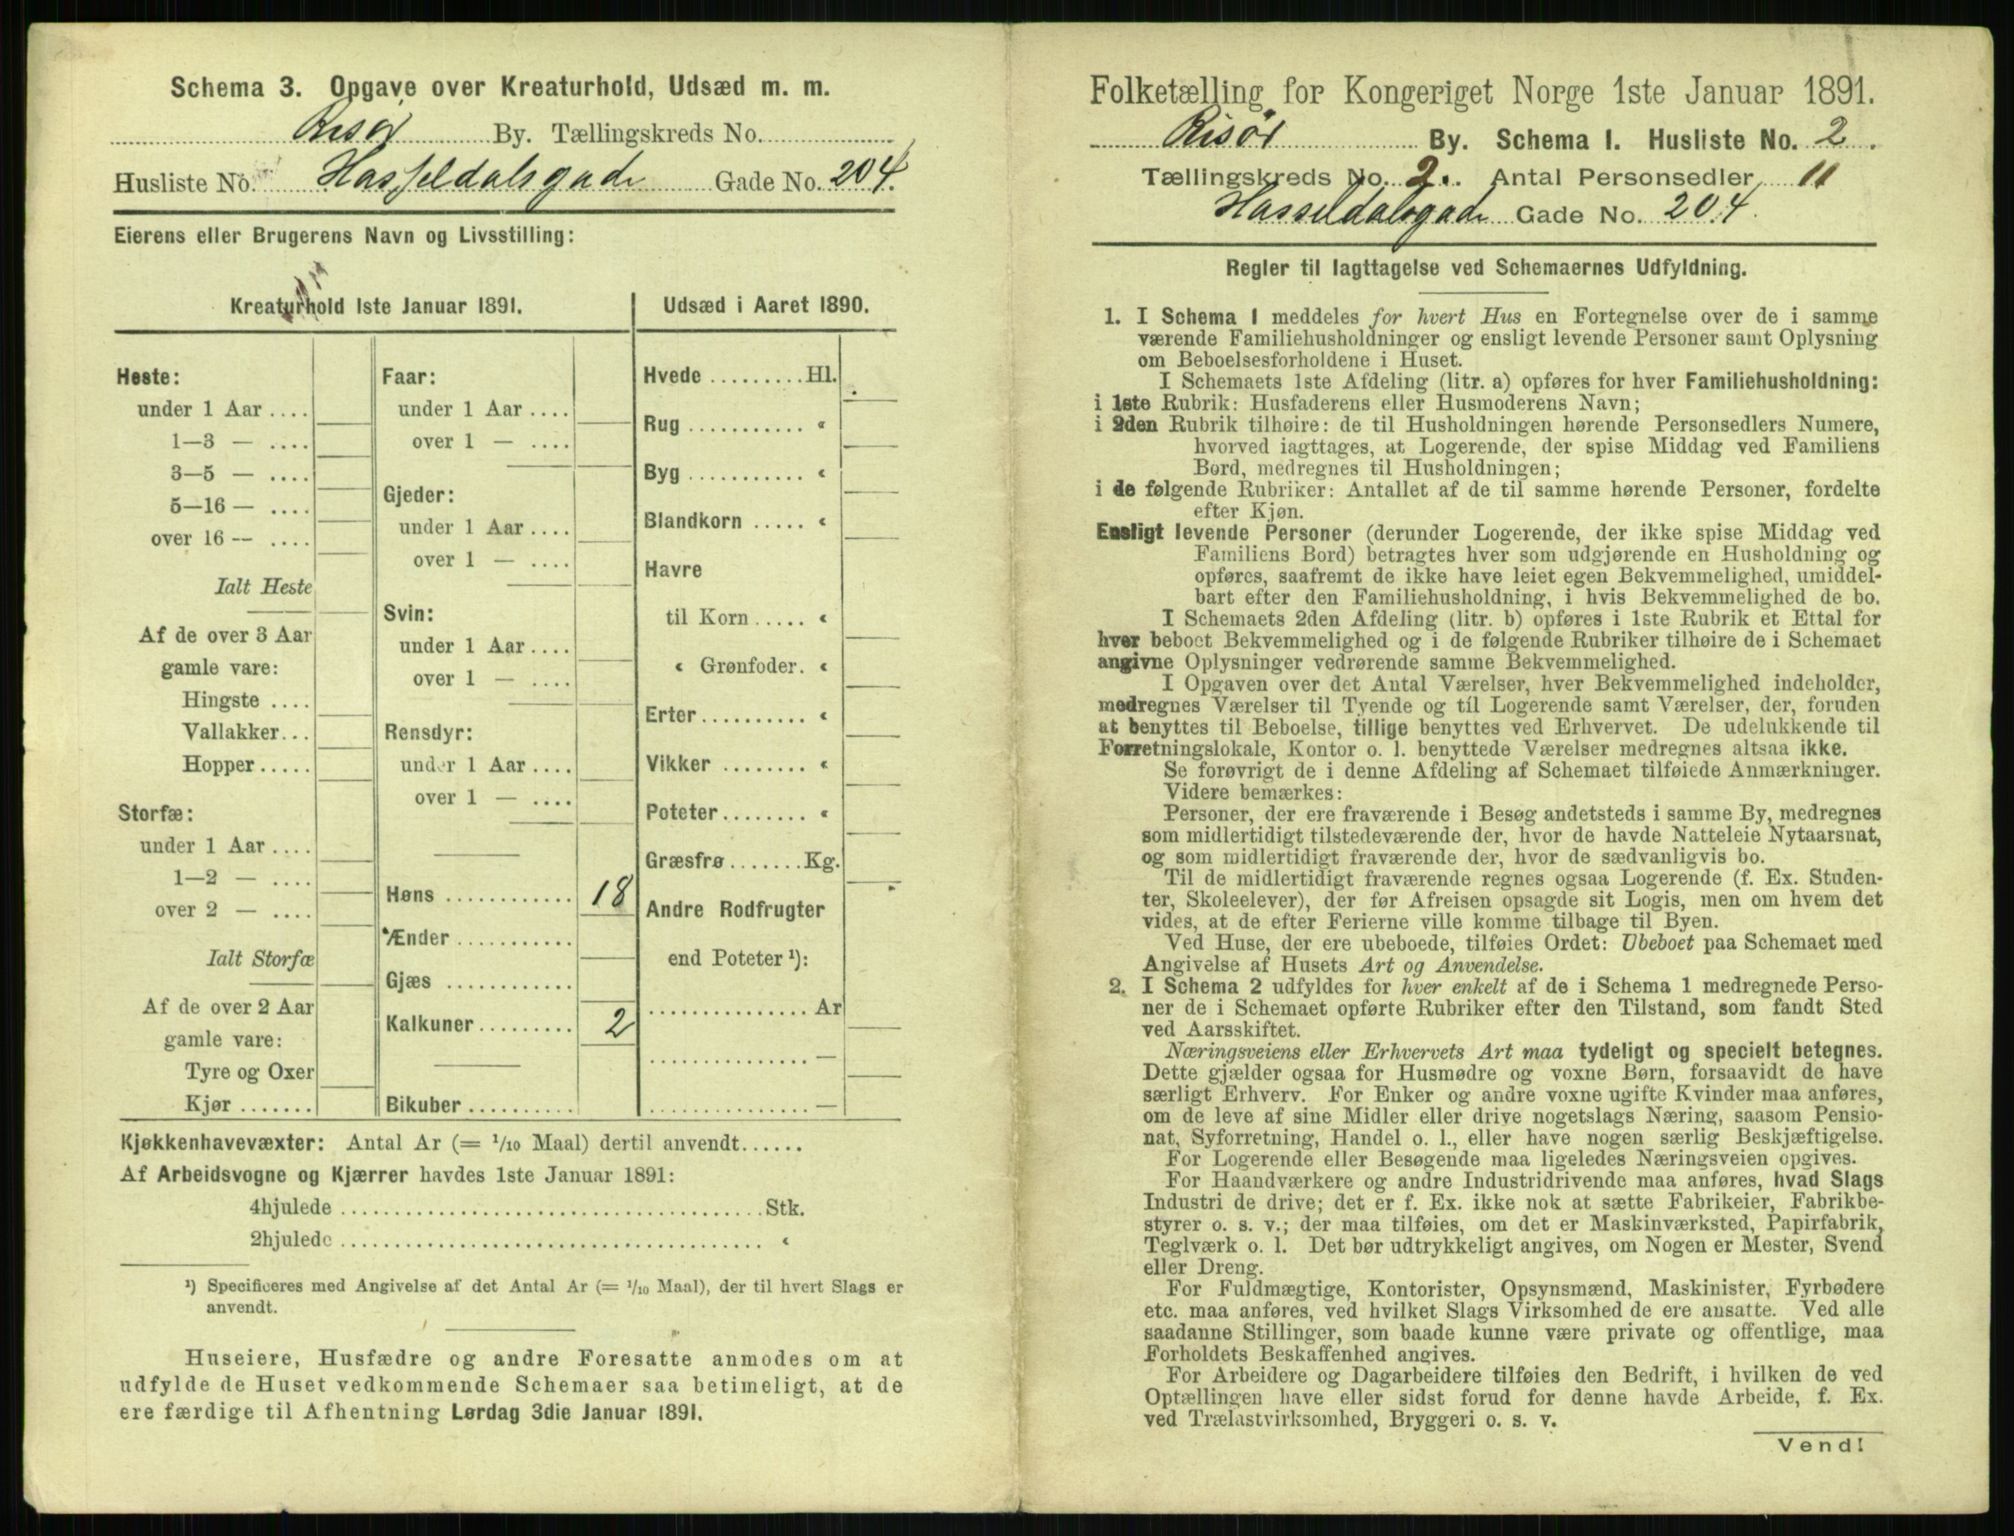 Schema 3. Opgave over Kreaturhold, Udsæd m. m.
Risør By. Tællingskreds No.
Husliste No. Hasseldalsgade Gade No. 204.
Eierens eller Brugerens Navn og Livsstilling:
Kreaturhold 1ste Januar 1891.
Heste:
under 1 Aar ....
1—3 — ....
3—5 — ....
5—16 — ....
over 16 — ....
Ialt Heste
Af de over 3 Aar
gamle vare:
Hingste ....
Vallakker...
Hopper .....
Storfæ:
under 1 Aar ....
1—2 — ....
over 2 — ....
Ialt Storfæ
Af de over 2 Aar
gamle vare:
Tyre og Oxer
Kjør .......
Faar:
under 1 Aar ....
over 1 — ....
Gjeder:
under 1 Aar ....
over 1 — ....
Svin:
under 1 Aar ....
over 1 — ....
Rensdyr:
under 1 Aar ....
over 1 — ....
Høns ............ 18
Ænder ...........
Gjæs ............
Kalkuner ......... 2
Bikuber ..........
Udsæd i Aaret 1890.
Hvede .........Hl.
Rug ........... «
Byg ........... «
Blandkorn ..... «
Havre
til Korn ..... «
« Grønfoder. «
Erter .......... «
Vikker ........ «
Poteter ........ «
Græsfrø .......Kg.
Andre Rodfrugter
end Poteter ¹):
............... Ar
............... —
............... —
Kjøkkenhavevæxter: Antal Ar (= 1/10 Maal) dertil anvendt......
Af Arbeidsvogne og Kjærrer havdes 1ste Januar 1891:
4hjulede ....................................... Stk.
2hjulede ....................................... «
¹) Specificeres med Angivelse af det Antal Ar (= 1/10 Maal), der til hvert Slags er
anvendt.
Huseiere, Husfædre og andre Foresatte anmodes om at
udfylde de Huset vedkommende Schemaer saa betimeligt, at de
ere færdige til Afhentning Lørdag 3die Januar 1891.
Folketælling for Kongeriget Norge 1ste Januar 1891.
Risør By. Schema 1. Husliste No. 2.
Tællingskreds No. 2. Antal Personsedler 11
Hasseldalsgade Gade No. 204.
Regler til Iagttagelse ved Schemaernes Udfyldning.
1. I Schema 1 meddeles for hvert Hus en Fortegnelse over de i samme
værende Familiehusholdninger og ensligt levende Personer samt Oplysning
om Beboelsesforholdene i Huset.
I Schemaets 1ste Afdeling (litr. a) opføres for hver Familiehusholdning:
i 1ste Rubrik: Husfaderens eller Husmoderens Navn;
i 2den Rubrik tilhøire: de til Husholdningen hørende Personsedlers Numere,
hvorved iagttages, at Logerende, der spise Middag ved Familiens
Bord, medregnes til Husholdningen;
i de følgende Rubriker: Antallet af de til samme hørende Personer, fordelte
efter Kjøn.
Ensligt levende Personer (derunder Logerende, der ikke spise Middag ved
Familiens Bord) betragtes hver som udgjørende en Husholdning og
opføres, saafremt de ikke have leiet egen Bekvemmelighed, umiddel-
bart efter den Familiehusholdning, i hvis Bekvemmelighed de bo.
I Schemaets 2den Afdeling (litr. b) opføres i 1ste Rubrik et Ettal for
hver beboet Bekvemmelighed og i de følgende Rubriker tilhøire de i Schemaet
angivne Oplysninger vedrørende samme Bekvemmelighed.
I Opgaven over det Antal Værelser, hver Bekvemmelighed indeholder,
medregnes Værelser til Tyende og til Logerende samt Værelser, der, foruden
at benyttes til Beboelse, tillige benyttes ved Erhvervet. De udelukkende til
Forretningslokale, Kontor o. l. benyttede Værelser medregnes altsaa ikke.
Se forøvrigt de i denne Afdeling af Schemaet tilføiede Anmærkninger.
Videre bemærkes:
Personer, der ere fraværende i Besøg andetsteds i samme By, medregnes
som midlertidigt tilstedeværende der, hvor de havde Natteleie Nytaarsnat,
og som midlertidigt fraværende der, hvor de sædvanligvis bo.
Til de midlertidigt fraværende regnes ogsaa Logerende (f. Ex. Studen-
ter, Skoleelever), der før Afreisen opsagde sit Logis, men om hvem det
vides, at de efter Ferierne ville komme tilbage til Byen.
Ved Huse, der ere ubeboede, tilføies Ordet: Ubeboet paa Schemaet med
Angivelse af Husets Art og Anvendelse.
2. I Schema 2 udfyldes for hver enkelt af de i Schema 1 medregnede Perso-
ner de i Schemaet opførte Rubriker efter den Tilstand, som fandt Sted
ved Aarsskiftet.
Næringsveiens eller Erhvervets Art maa tydeligt og specielt betegnes.
Dette gjælder ogsaa for Husmødre og voxne Børn, forsaavidt de have
særligt Erhverv. For Enker og andre voxne ugifte Kvinder maa anføres,
om de leve af sine Midler eller drive nogetslags Næring, saasom Pensio-
nat, Syforretning, Handel o. l., eller have nogen særlig Beskjæftigelse.
For Logerende eller Besøgende maa ligeledes Næringsveien opgives.
For Haandværkere og andre Industridrivende maa anføres, hvad Slags
Industri de drive; det er f. Ex. ikke nok at sætte Fabrikeier, Fabrikbe-
styrer o. s. v.; der maa tilføies, om det er Maskinværksted, Papirfabrik,
Teglværk o. l. Det bør udtrykkeligt angives, om Nogen er Mester, Svend
eller Dreng.
For Fuldmægtige, Kontorister, Opsynsmænd, Maskinister, Fyrbødere
etc. maa anføres, ved hvilket Slags Virksomhed de ere ansatte. Ved alle
saadanne Stillinger, som baade kunne være private og offentlige, maa
Forholdets Beskaffenhed angives.
For Arbeidere og Dagarbeidere tilføies den Bedrift, i hvilken de ved
Optællingen have eller sidst forud for denne havde Arbeide, f. Ex.
ved Trælastvirksomhed, Bryggeri o. s. v.
Vend!